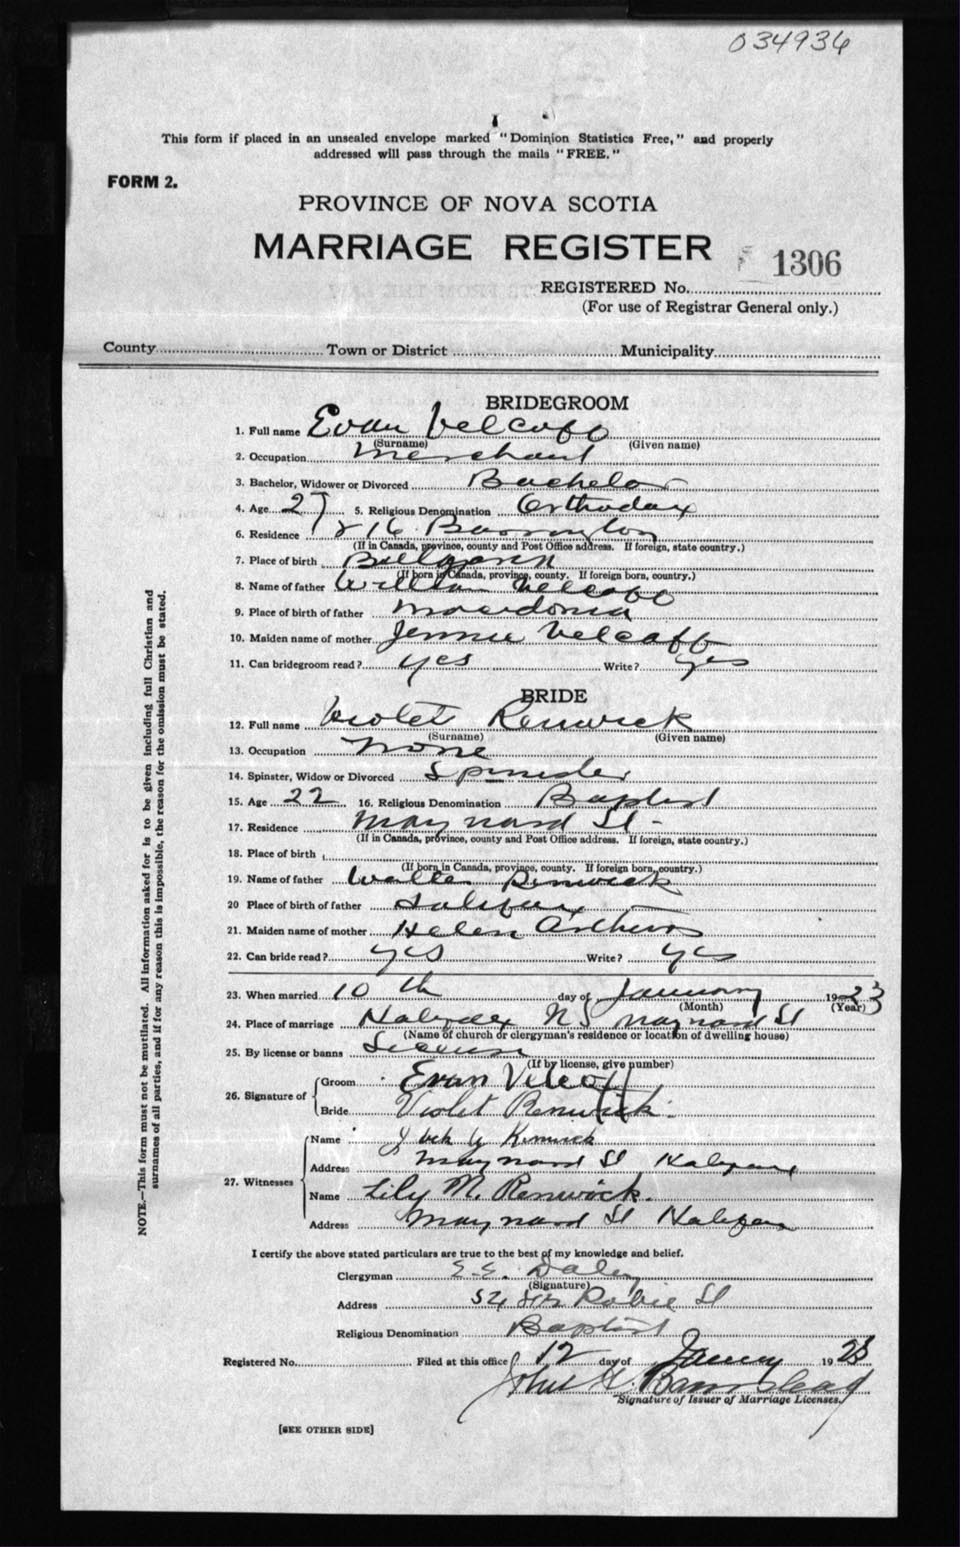 034936
This form if placed in an unsealed envelope marked "Dominion Statistics Free," and properly
addressed will pass through the mails "FREE."
FORM 2.
PROVINCE OF NOVA SCOTIA
MARRIAGE REGISTER
1306
REGISTERED No.
(For use of Registrar General only.)
County Town or District Municipality
BRIDEGROOM
1. Full name Evan Velcoff
(Surname) (Given name)
2. Occupation Merchant
3. Bachelor, Widower or Divorced Bachelor
4. Age 27 5. Religious Denomination Orthodax
6. Residence 216 Barrington
(If in Canada, province, county and Post Office address. If foreign, state country.)
7. Place of birth
(If born in Canada, province, county. If foreign born, country.)
8. Name of father William Velcoff
9. Place of birth of father Macedonia
10. Maiden name of mother Jennie Velcoff
11. Can bridegroom read? yes Write? yes
BRIDE
12. Full name Violet Renwick
(Surname) (Given name)
13. Occupation none
14. Spinster, Widow or Divorced Spinster
15. Age 22 16. Religious Denomination Baptist
17. Residence Maynard St -
(If in Canada, province, county and Post Office address. If foreign, state country.)
18. Place of birth
(If born in Canada, province, county. If foreign born, country.)
19. Name of father Walter Renwick
20 Place of birth of father Halifax
21. Maiden name of mother Helen Arthurs
22. Can bride read? yes Write? yes
23. When married 10 th day of January 1923
(Month) (Year)
24. Place of marriage Halifax NS Maynard St
(Name of church or clergyman's residence or location of dwelling house)
25. By license or banns License
(If by license, give number)
26. Signature of
Groom Evan Velcoff
Bride Violet Renwick.
27. Witnesses
Name
Address Maynard St Halifax
Name Lily M. Renwick.
Address Maynard St Halifax
I certify the above stated particulars are true to the best of my knowledge and belief.
Clergyman E. E. Daley
(Signature)
Address Robie St
Religious Denomination Baptist
Registered No. Filed at this office 12 day of January 1923
Signature of Issuer of Marriage Licenses.
[SEE OTHER SIDE]
NOTE.—This form must not be mutilated. All information asked for is to be given including full Christian and
surnames of all parties, and if for any reason this is impossible, the reason for the omission must be stated.